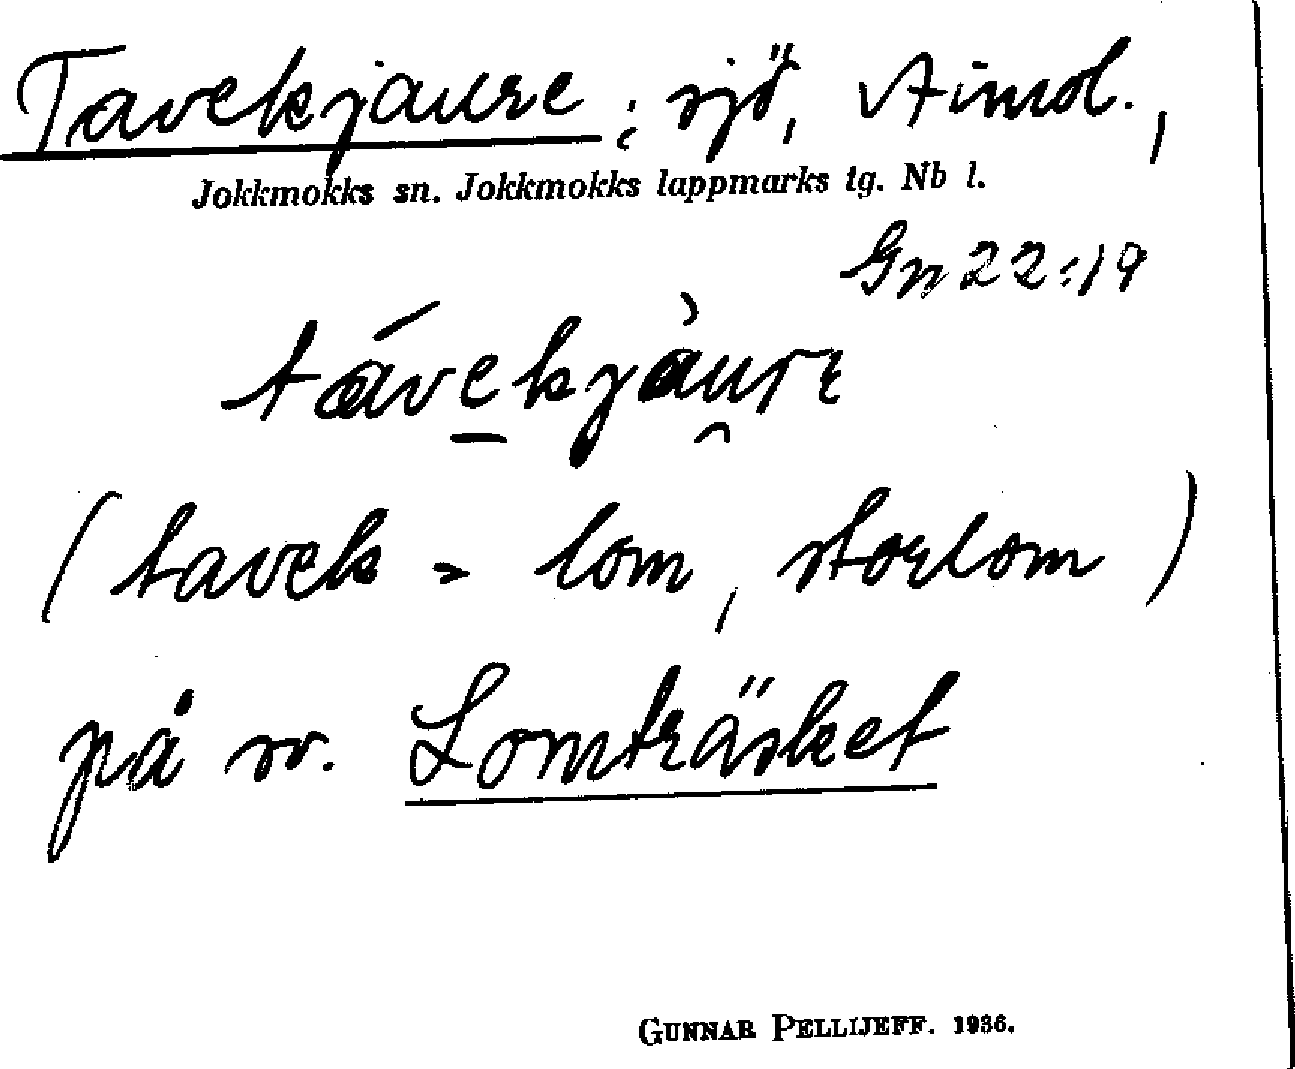 Tavekjaure ; sjö,
Jokkmokks sn. Jokkmokks lappmarks tg. Nb l.
Gn 22:19
távekjàurɛ
(tavek = lom, storlom)
på sv. Lomträsket
GUNNAR PELLIJEFF. 1936.